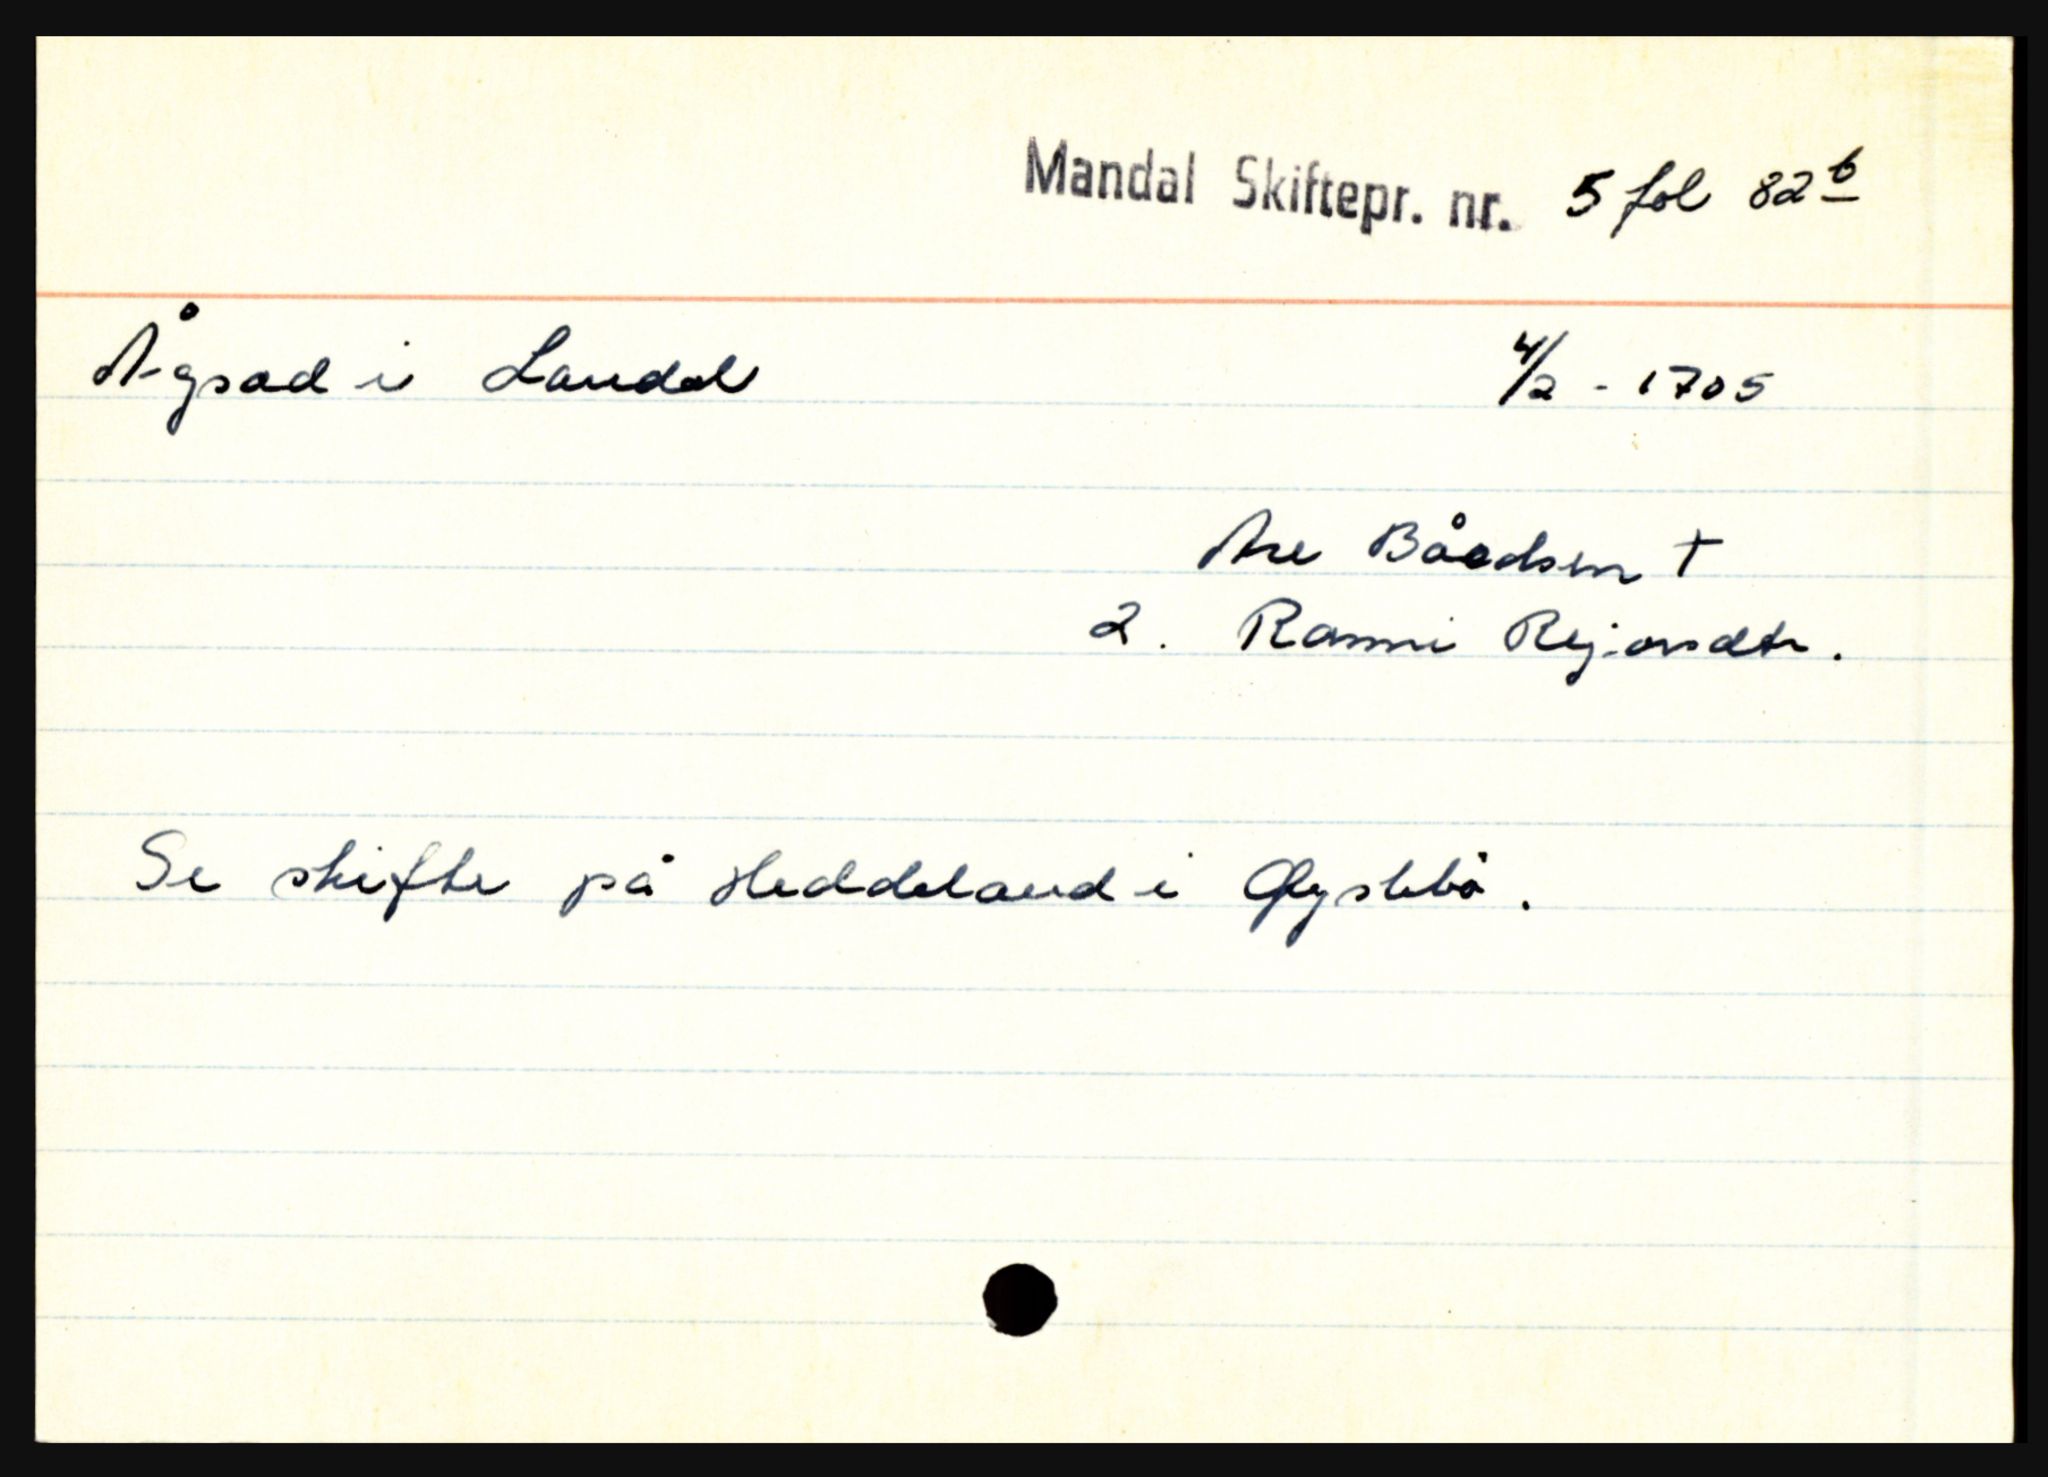 Mandal Skiftepr. nr. 5 fol 82 b
Ågsad i Laudal 4/2 - 1705
Are Bårdsen †
2. Ranni Rejersdtr.
Se skifte på Heddeland i Øyslebø.